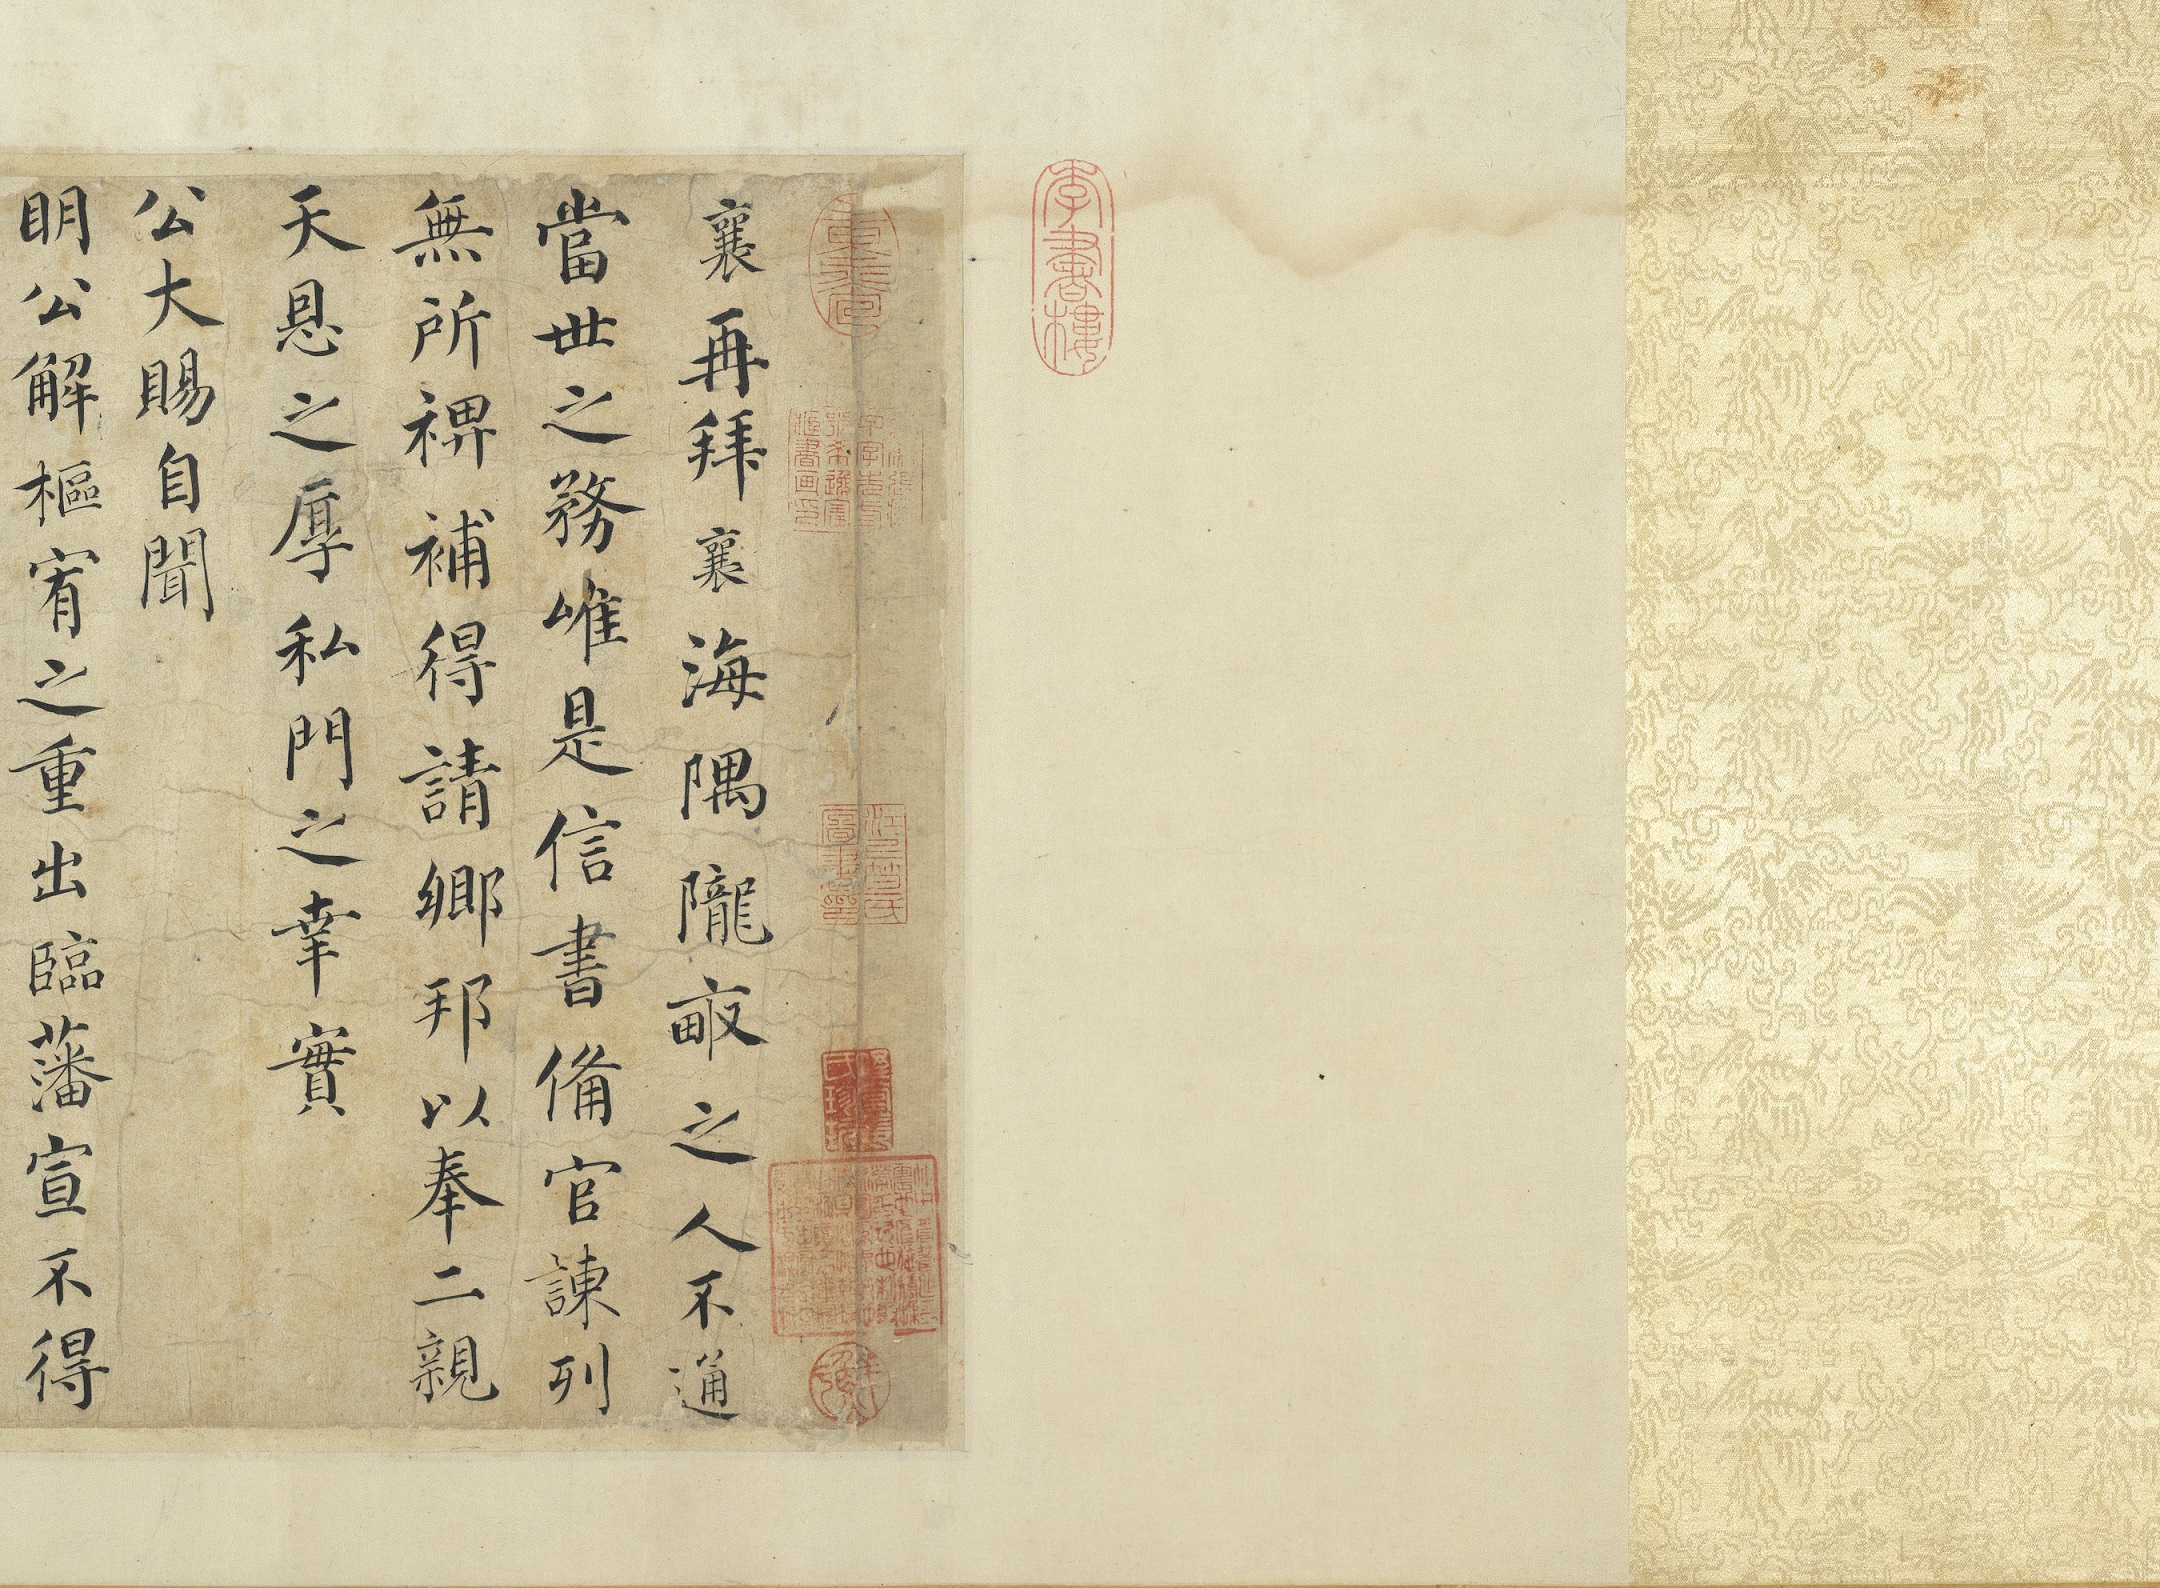 李書樓
襄再拜襄海隅隴畝之人不通
當世之務唯是信書備官諫列
無所裨補得請鄉邦以奉二親
天恩之厚私門之幸實
公大賜自聞
明公解樞宥之重出臨藩宣不得